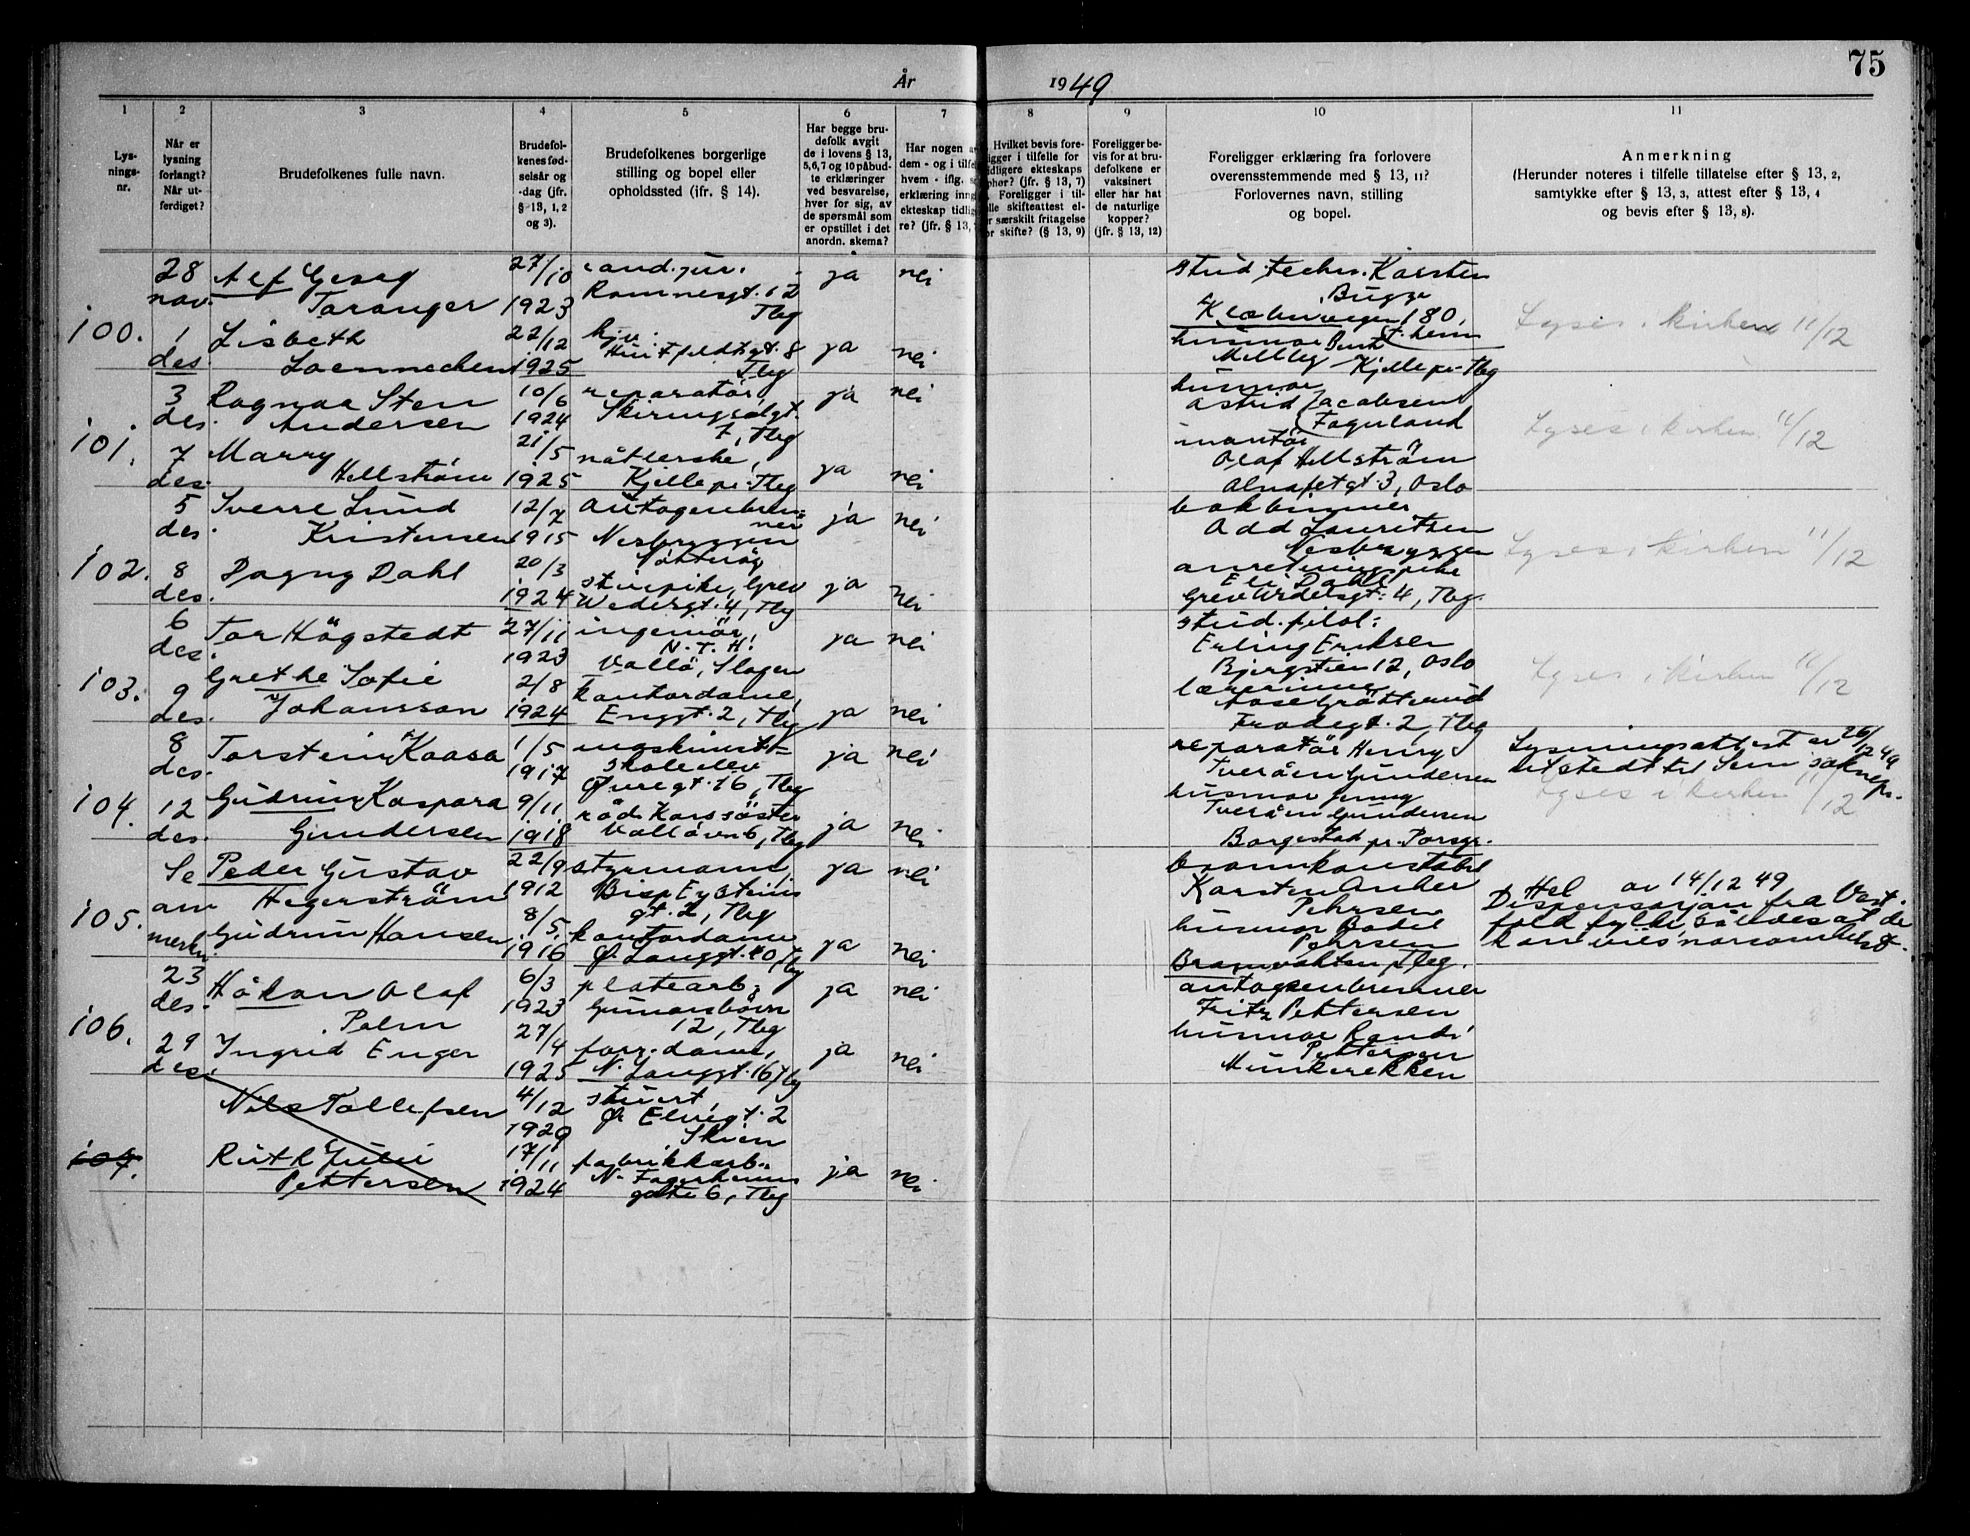 75
År 1949
1 2 3 4 5 6 7 8 9 10 11
Lys-
nings-
nr.
Når er
lysning
forlangt?
Når ut-
ferdiget?
Brudefolkenes fulle navn.
Brudefol-
kenes fød-
selsår og
-dag (jfr.
§ 13, 1, 2
og 3).
Brudefolkenes borgerlige
stilling og bopel eller
opholdssted (ifr. § 14).
Har begge bru-
defolk avgit
de i lovens § 13,
5,6,7 og 10 påbud-
te erklæringer
ved besvarelse,
hver for sig, av
de spørsmål som
er opstillet i det
anordn. skema?
Har nogen a
dem - og i tilfe
hvem - iflg.
erklæring inng
ekteskap tidlig
re? (jfr. § 13,
Hvilket bevis fore-
ligger i tilfelle for
idligere ekteskaps
phør? (jfr. § 13, 7)
Foreligger i til-
elle skifteattest el-
r særskilt fritagelse
or skifte? (§ 13, 9)
Foreligger be-
vis for at bru-
defolkene er
vaksinert
eller har hat
de naturlige
kopper?
(jfr. § 13, 12)
Foreligger erklæring fra forlovere
overensstemmende med § 13, 11?
Forlovernes navn, stilling
og bopel.
Anmerkning
(Herunder noteres i tilfelle tillatelse efter § 13, 2,
samtykke efter § 13, 3, attest efter § 13, 4
og bevis efter § 13, 8).
100.
28
nov.
1
des.
Alf
Taranger
Lisbeth
27/10
1923
22/12
1925
cand. jur.
12
Tbg
Huitfeldtsgt. 8
Tbg
ja nei
ja nei
stud. techn. Karsten
Bugge
180,
husmor
Kjelle pr. Tbg
Lyses i kirken 11/12
101.
3
des.
7
des.
Ragnar Sten
Andersen
Marry
Hellström
10/6
1924
21/5
1925
reparatör,
Skiringsalgt.
7, Tbg
nåtlerske,
Kjelle pr. Tbg
ja nei
ja nei
husmor
Astrid Jacobsen
Fagerland
montör
Olaf Hellström
3, Oslo
Lyses i kirken 11/12
102.
5
des.
8
des.
Sverre Lund
Kristensen
Dagny Dahl
12/7
1915
20/3
1924
Autogenbren-
ner
Nesbryggen
Nötteröy
Grev
Wedelsgt. 4, Tbg
ja nei
ja nei
bokbinder
Odd Lauritsen
Nesbryggen
anretningspike
Eli Dahl
Grev Wedelsgt. 4, Tbg.
Lyses i kirken 11/12
103.
6
des.
9
des.
Tor Högstedt
Grethe Sofie
Johansson
27/11
1923
2/8
1924
ingeniör,
N.T.H.
Vallö, Slagen
kontordame,
Enggt. 2, Tbg
ja nei
ja nei
stud. filol.
Erling Eriksen
12, Oslo
lærerinne
Aase Grötterud
Frodegt. 2, Tbg
Lyses i kirken 11/12
104.
8
des.
12
des.
Torstein Kaasa
Gudrun Kaspara
Gundersen
1/5
1917
9/11
1918
skoleelev
Øvregt. 16, Tbg
röde korssöster
Vallöven 6, Tbg
ja nei
ja nei
reparatör Henry
Tveråen Gundersen
husmor Jenny
Tveråen Gundersen
Borgestad pr. Porsgr.
Lysningsattest av 26/12 49
utstedt til Sem soknepr.
Lyses i kirken 11/12
105.
Se
anmerkn.
Peder Gustav
Hegerström
Gudrun Hansen
22/9
1912
8/5
1916
styrmann,
Bisp Eysteins
gt. 2, Tbg
kontordame
Ø. Langgt. 40, Tbg
ja nei
ja nei
brannkonstabel
Karsten Anker
Pehrsen
husmor Bodil
Pehrsen
Brannvakten, Tbg.
av 14/12 49
Dispensasjon fra Vest-
fold fylke, således at de
kan vies
106.
23
des.
29
des.
Håkon Olaf
Palm
Ingrid Enger
6/3
1923
27/4
1925
platearb.
Gunarsbövn
12, Tbg
forr. dame,
N. Langgt. 16, Tbg
ja nei
ja nei
autogenbrenner
Fritz Pettersen
husmor Randi
Pettersen
Munkerekken
107.
Nils Tollefsen
Ruth Julie
Pettersen
4/12
1920
17/11
1924
stuert,
Ø. Elvegt. 2
Skien
fabrikkarb.
N. Fagerheims
gate 6, Tbg
ja nei